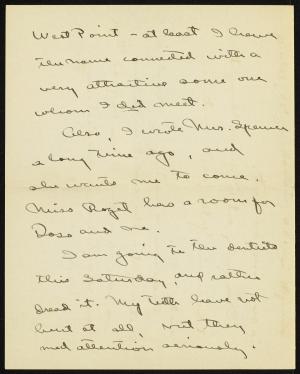 West Point - at least I have
the name connected with a
very attractive some one
whom I did meet.
Also, I wrote Mrs. Spencer
a long time ago, and
she wants me to come.
Miss Roget has a room for
Doso and me.
I am going to the dentists
this Saturday, and rather
dread it. My teeth have not
hurt at all, but they
need attention seriously.